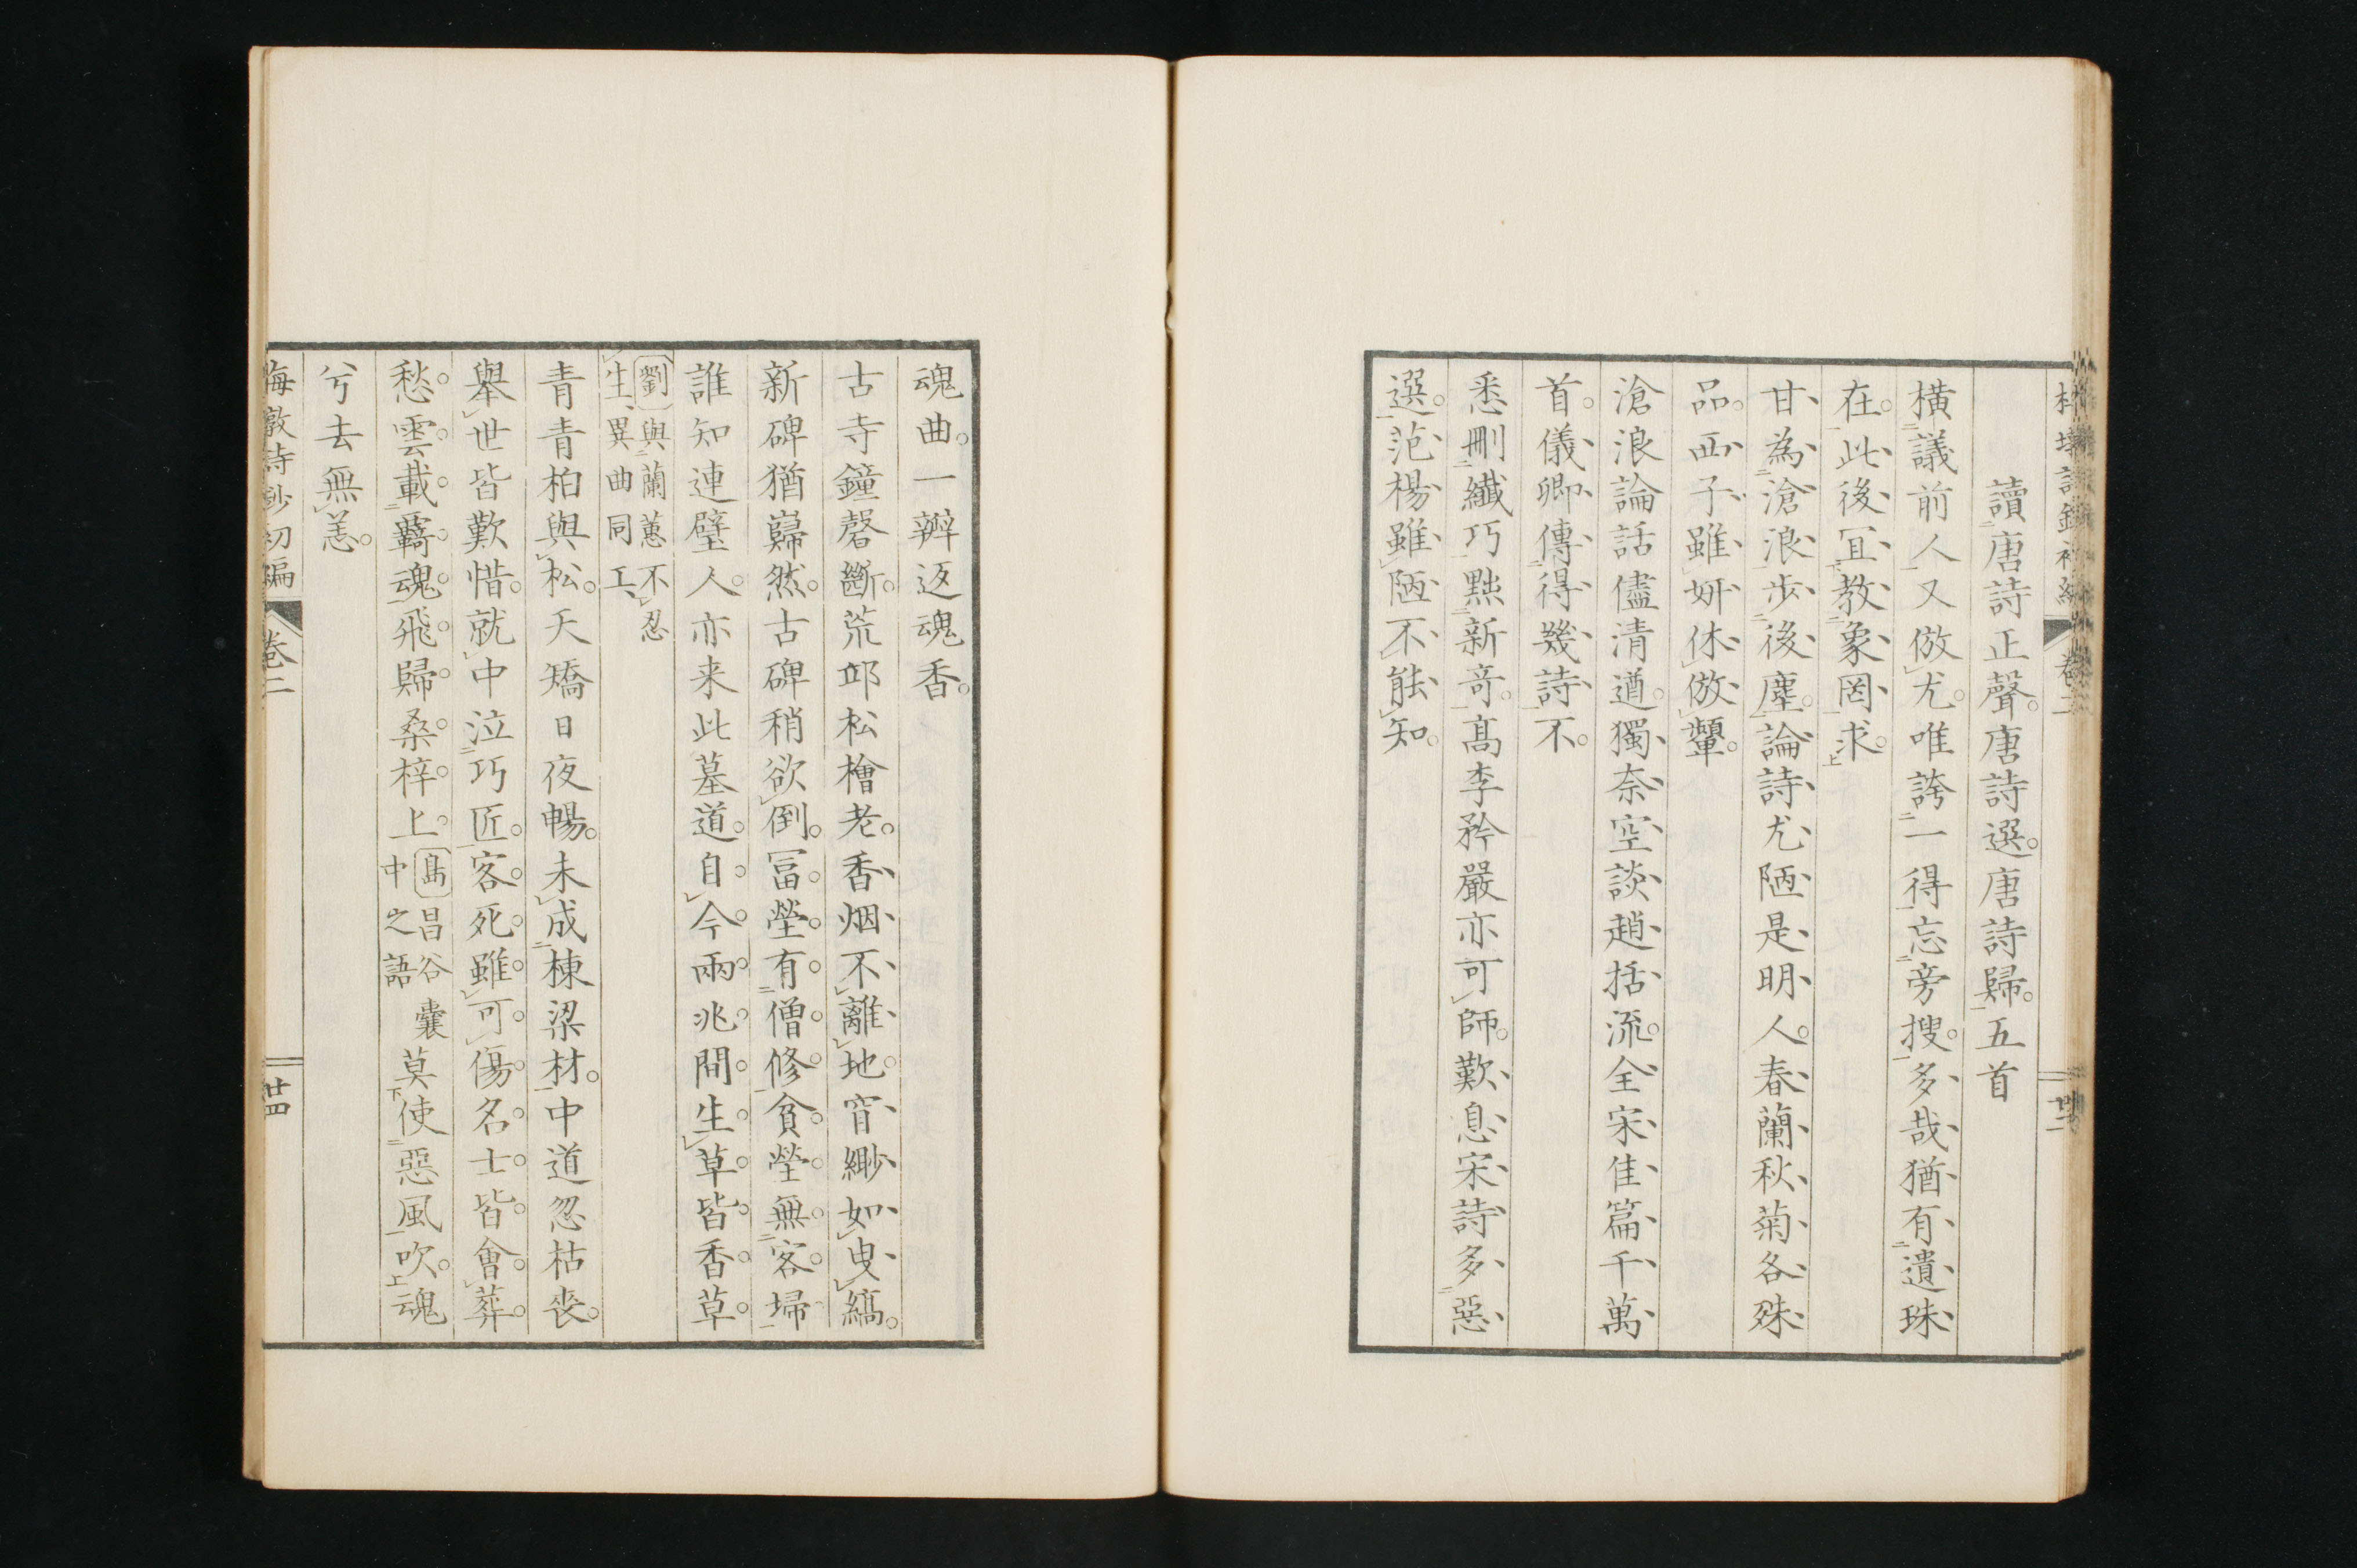 讀唐詩正聲。唐詩選。唐詩歸。五首
橫議前人又倣尤。唯誇一得忘旁搜。多哉猶有遺珠
在。此後冝教象罔求。
甘為滄浪步後塵。論詩尤陋是明人。春蘭秋菊各殊
品。西子雖妍休倣顰。
滄浪論話儘清遒。獨奈空談趙括流。全宋佳篇千萬
首。儀卿傳得幾詩不。
悉刪纖巧黜新竒。高李矜嚴亦可師。歎息宋詩多惡
選。范楊雖陋不能知。
魂曲。一辨返魂香。
古寺鐘磬斷。荒邙松檜老。香烟不離地。窅緲如曳縞。
新碑猶巋然。古碑稍欲倒。冨塋有僧修。貧塋無客埽
誰知連璧人。亦来此墓道。自今兩兆間。生草皆香草
劉與蘭蕙不忍
生、異曲同工、
青青柏與松。夭矯日夜暢。未成棟梁材。中道忽枯喪。
舉世皆歎惜。就中泣巧匠。客死雖可傷。名士皆會葬。
愁雲載羇魂。飛歸桑梓上。島昌谷囊中之語莫使惡風吹。魂
兮去無恙。
梅墩詩鈔初編 卷二 廿四